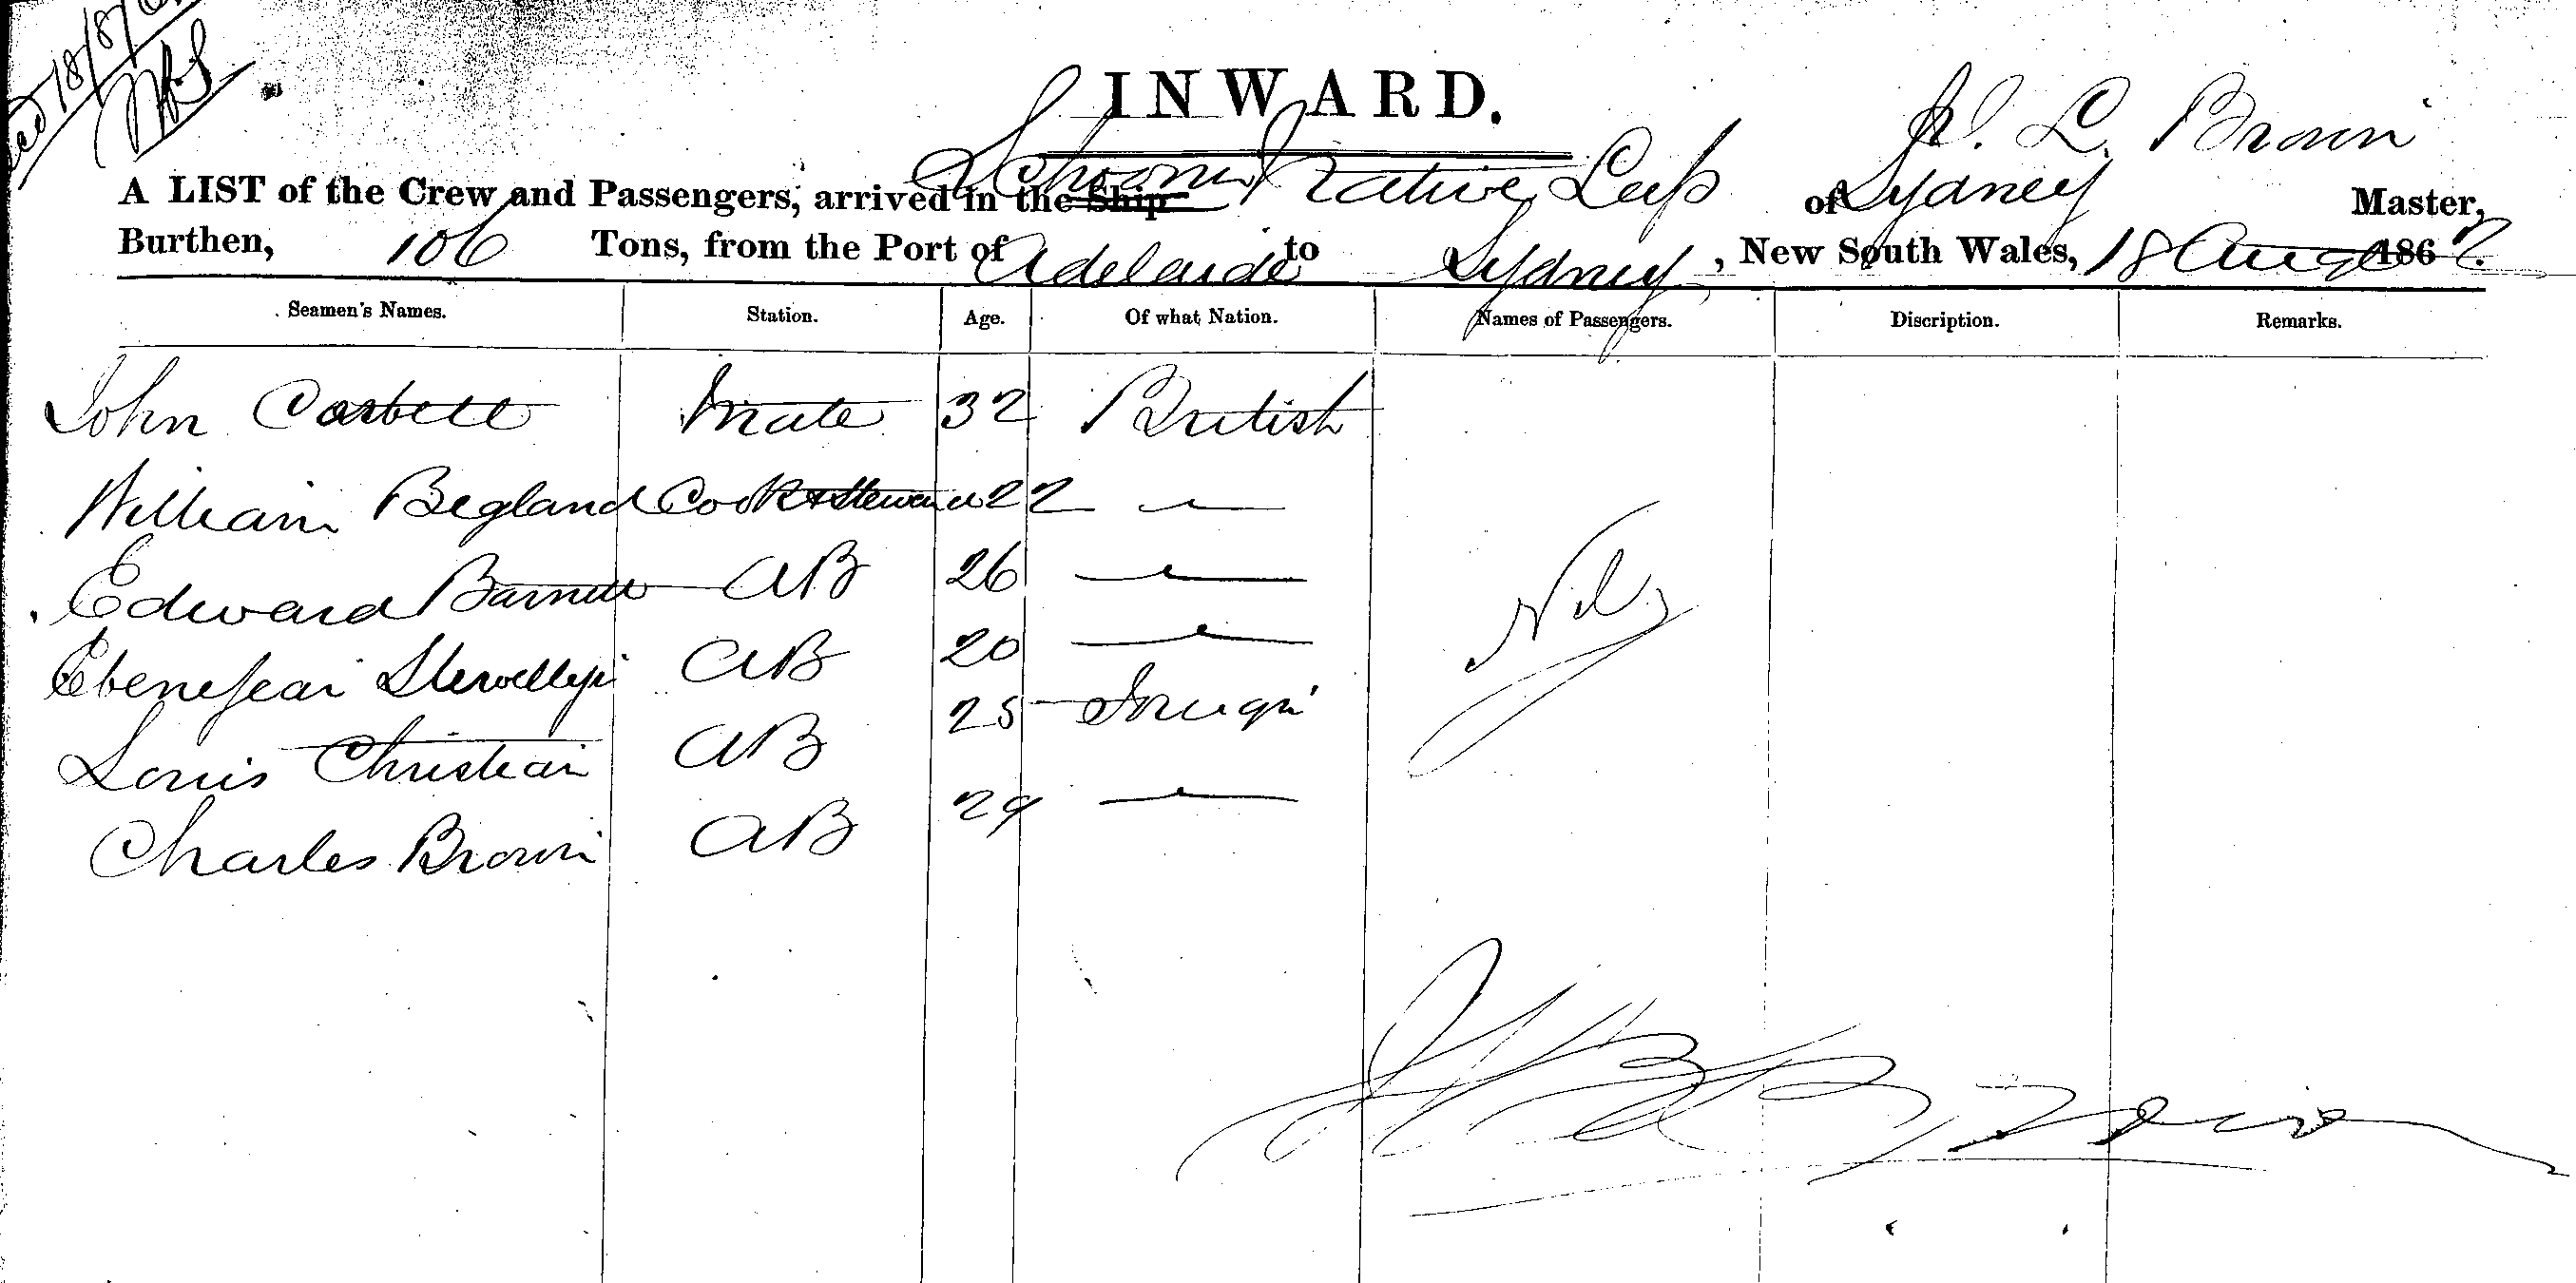 18/8/6
INWARD.
L. Brown
A LIST of the Crew and Passengers, arrived in the Ship Schooner Native Lass of Sydney Master,
Burthen, 106 Tons, from the Port of Adelaide to Sydney, New South Wales, 18 Aug 186
Seamen's Names. Station. Age. Of what Nation. Names of Passengers. Discription. Remarks.
John Corbett Mate 32 British
William Begland Cook & Steward 22 —
Edward Barnett AB 26 —
Ebenesear Llewellyn AB 20 —
Louis Christian AB 25 Foreign
Charles Brown AB 29 —
Nil
Brown